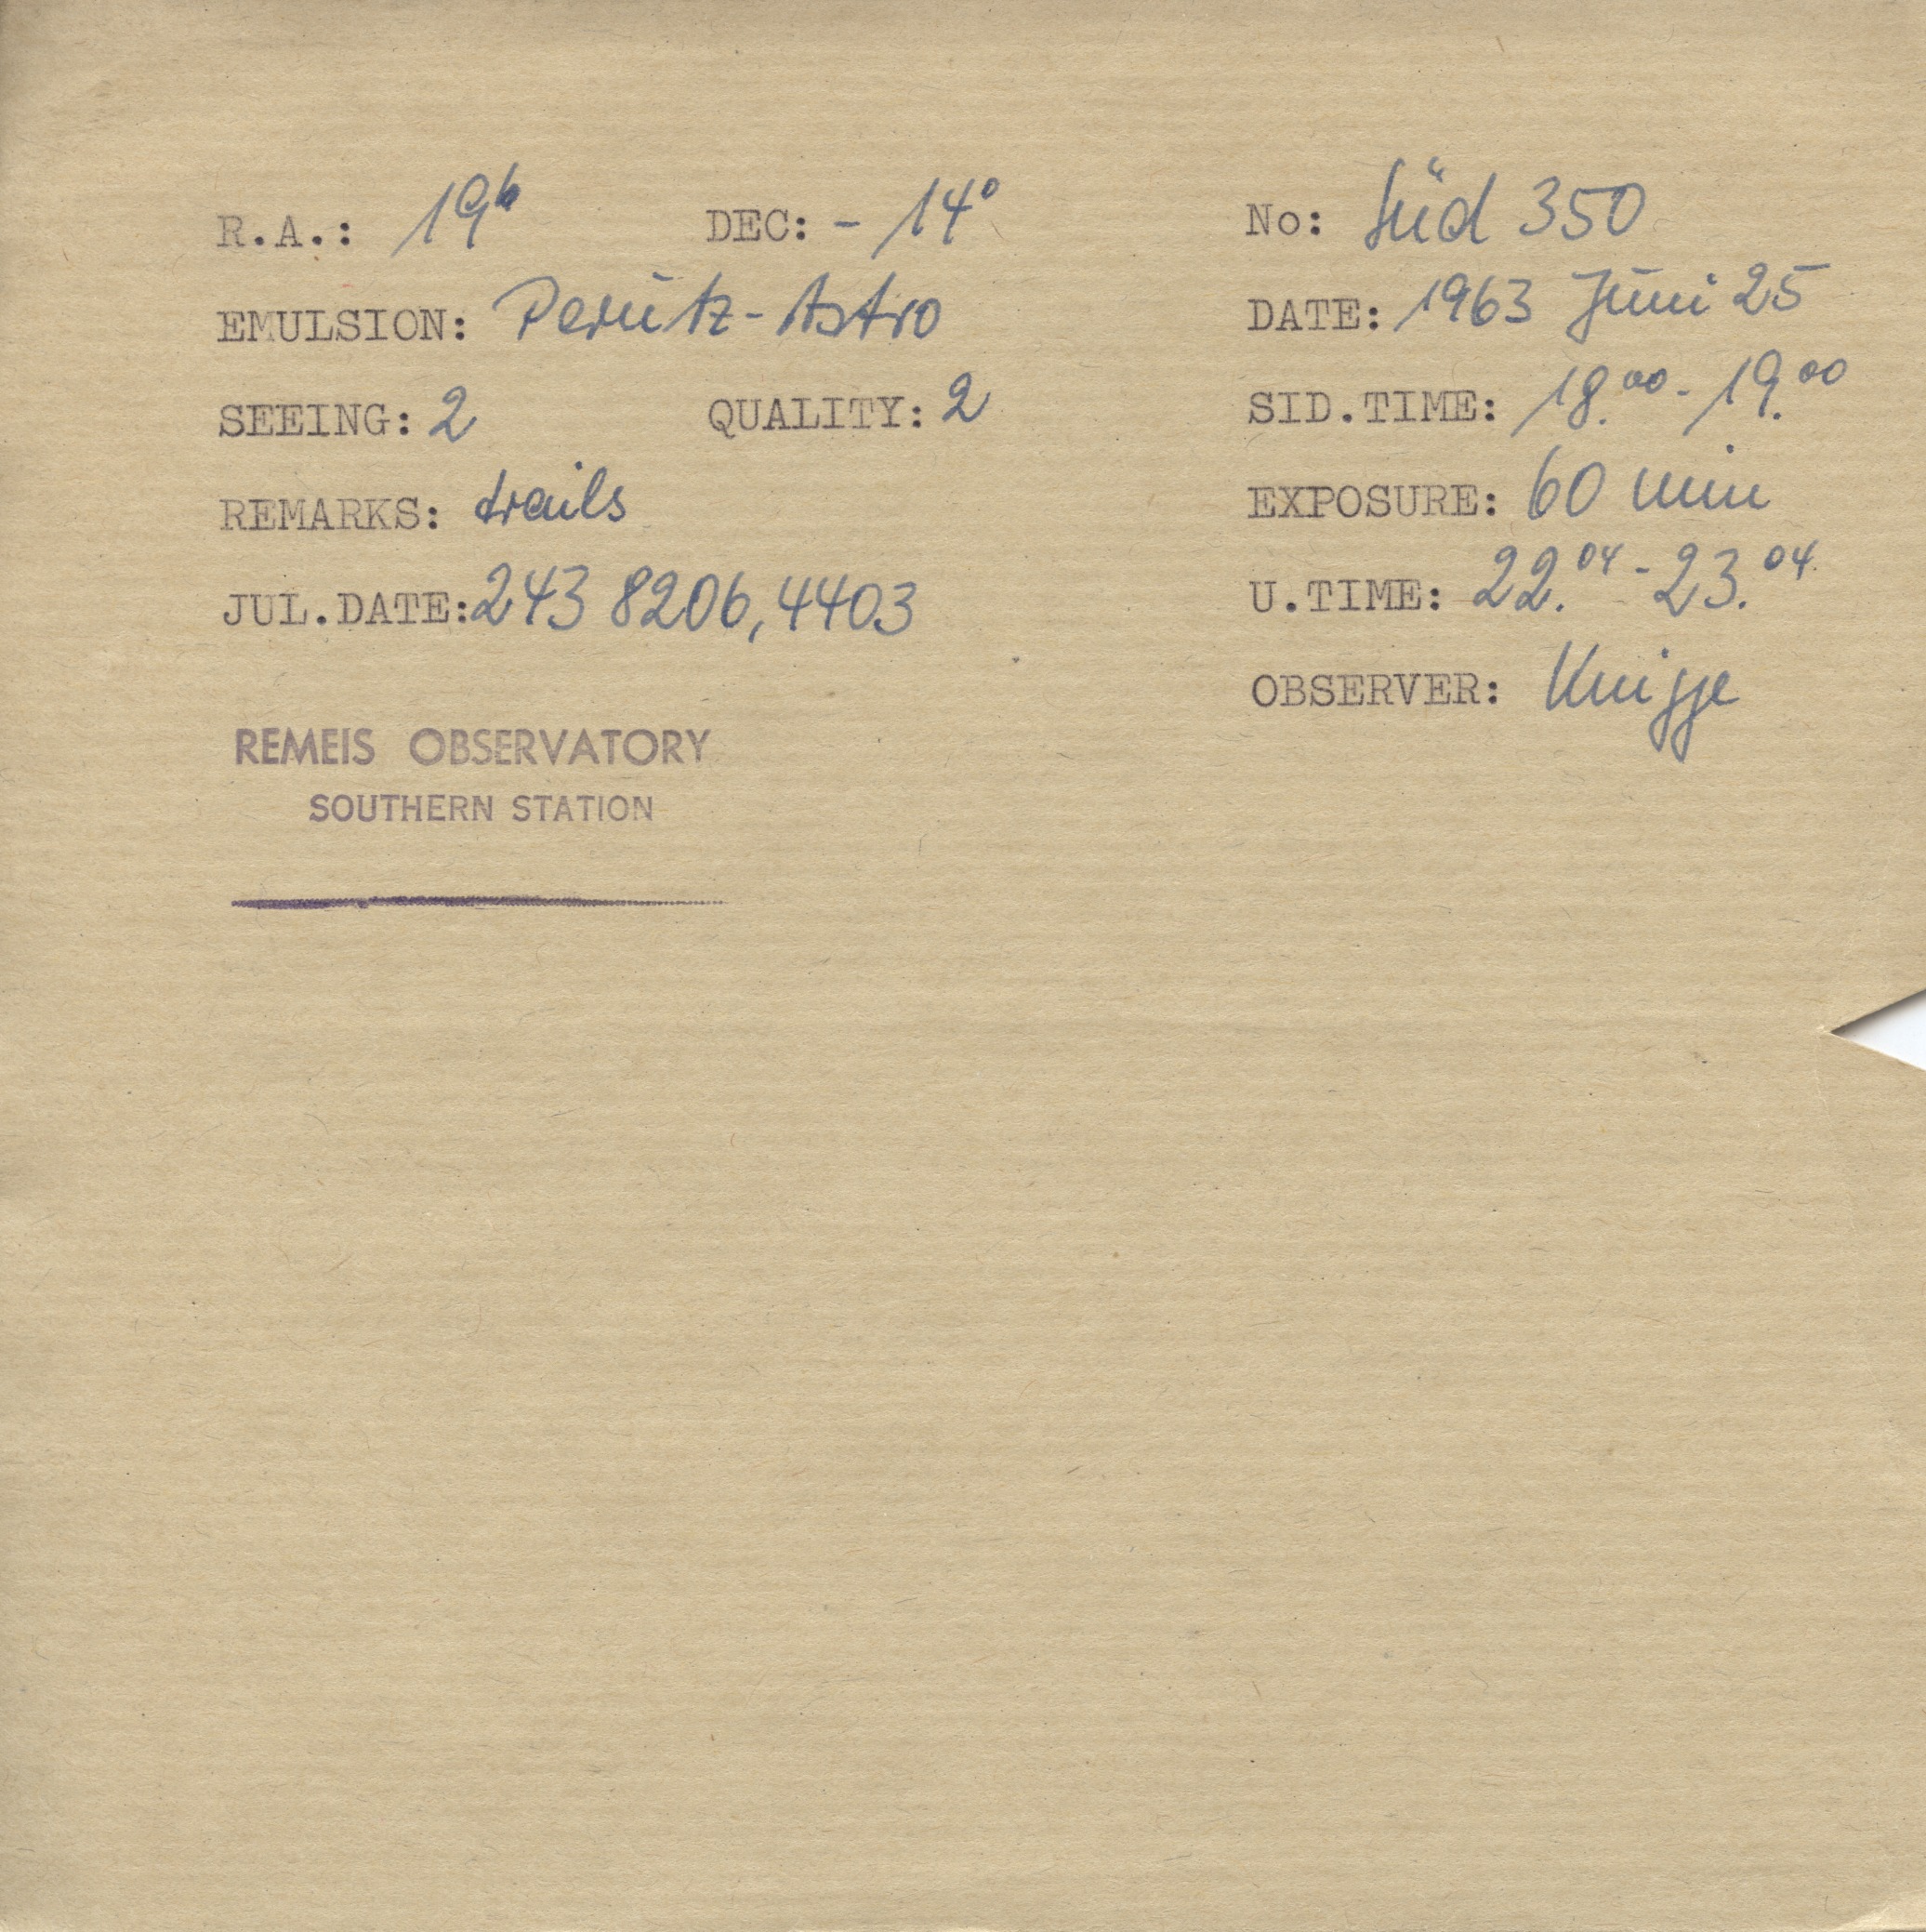 R.A.: 19h DEC: - 14° No: Süd 350
EMULSION: Perutz-Astro DATE: 1963 Juni 25
SEEING: 2 QUALITY: 2 SID.TIME: 18.00 - 19.00
REMARKS: trails EXPOSURE: 60 min
JUL.DATE: 243 8206,4403 U.TIME: 22.04 - 23.04
OBSERVER: Knigge
REMEIS OBSERVATORY
SOUTHERN STATION